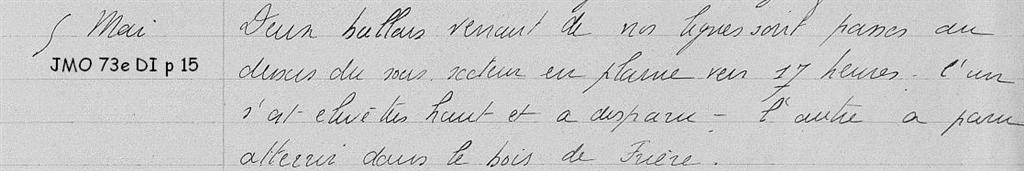 5 Mai
JMO 73e DI p 15
Deux ballons venant de nos lignes sont passés au
dessus du sous-secteur en flamme vers 17 heures - l'un
s'est elevé très haut et a disparu - l'autre a paru
atterrir dans le bois de Frière.